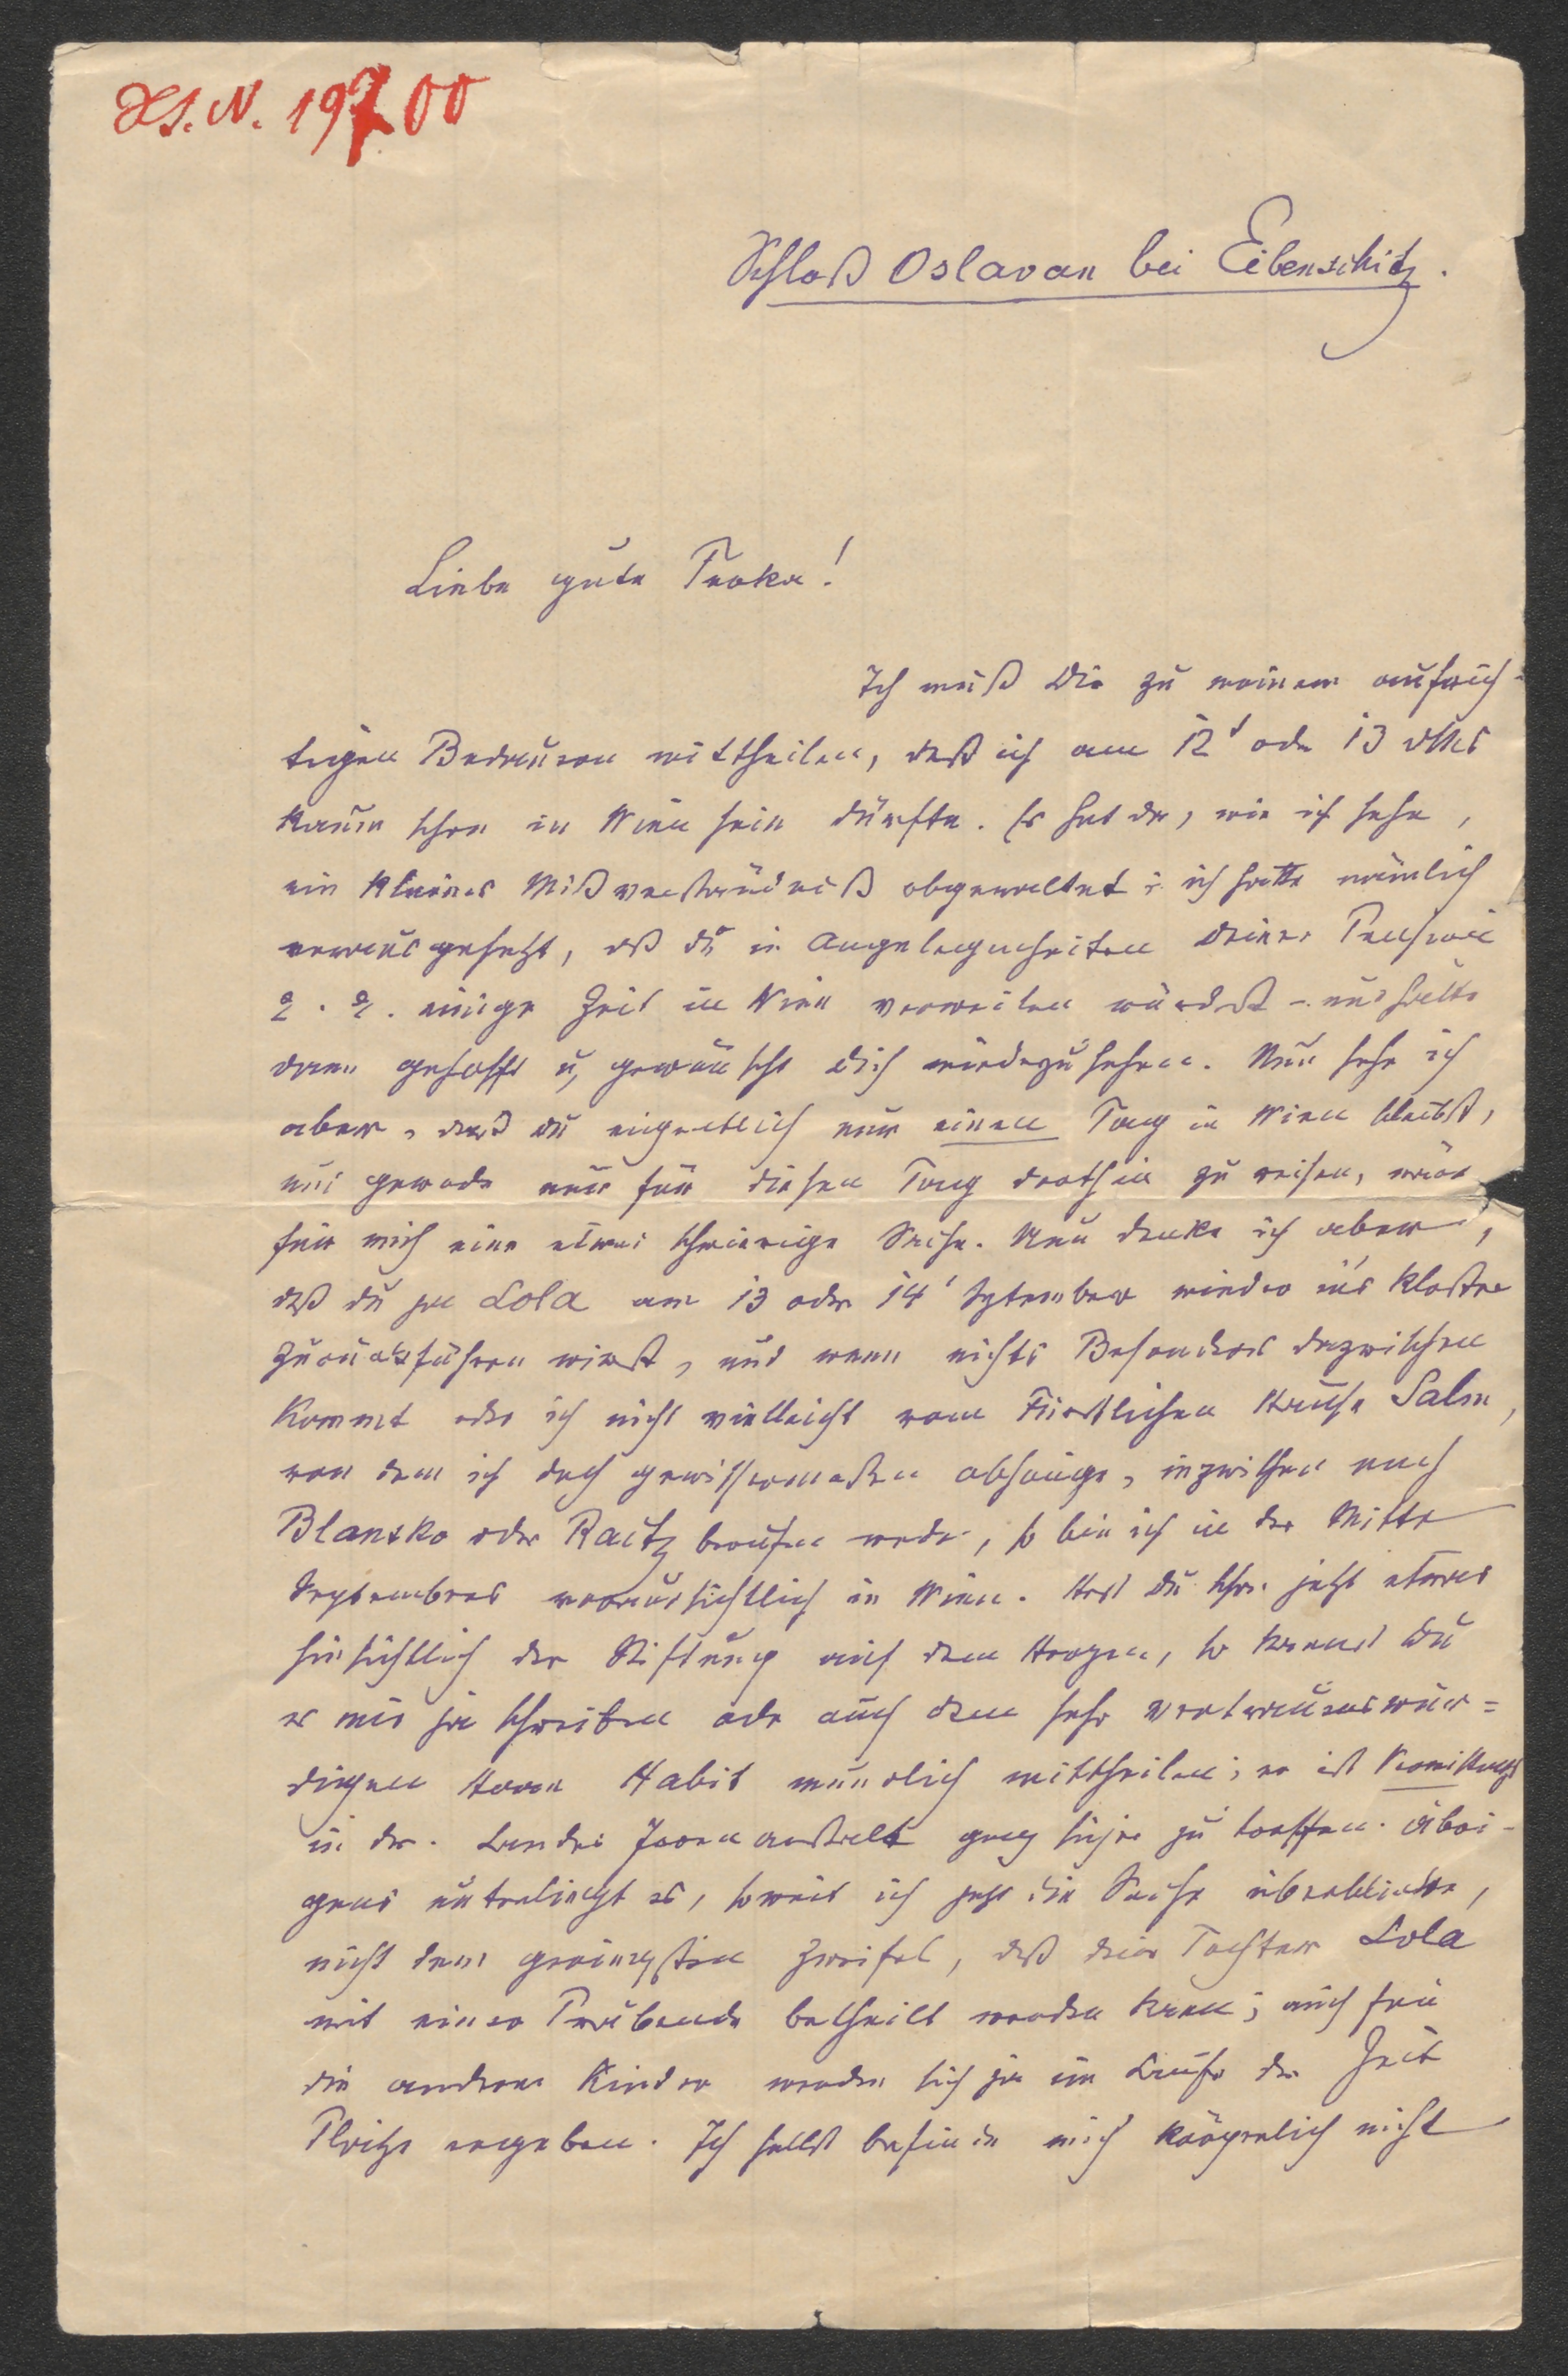 H.I.N. 19700
Schloß Oslavan bei Eibenschitz.
Liebe gute Terka!
Ich muß Dir zu meinem aufrich-
tigen Bedauern mittheilen, daß ich am 12' oder 13 dMs
kaum schon in Wien sein dürfte. Es hat da, wie ich sehe,
ein kleines Mißverständniß obgewaltet; ich hatte nämlich
vorausgesetzt, daß Du in Angelegenheiten Deiner Pension
z. Z. einige Zeit in Wien verweilen würdest – und hätte
dann gehofft u, gewünscht Dich wiederzusehen. Nun sehe ich
aber, daß Du eigentlich nur einen Tag in Wien bleibst,
und gerade nur für diesen Tag dorthin zu reisen, wäre
für mich eine etwas schwierige Sache. Nun denke ich aber,
daß Du ja Lola am 13 oder 14' September wieder in's Kloster
zurückführen wirst, und wenn nichts Besonderes dazwischen
kommt oder ich nicht vielleicht vom Fürstlichen Hause Salm,
von dem ich doch gewissermaßen abhänge, inzwischen nach
Blansko oder Raitz berufen werde, so bin ich in der Mitte
Septembers voraussichtlich in Wien. Hast Du schon jetzt etwas
hinsichtlich der Stiftung auf dem Herzen, so kannst Du
es mir ja schreiben oder auch dem sehr vertrauenswür=
digen Herrn Habit mündlich mittheilen; er ist Vormittags
in der Landes Irrenanstalt ganz sicher zu treffen. Übri-
gens unterliegt es, soweit ich jetzt die Sache überblicke,
nicht dem geringsten Zweifel, daß Deine Tochter Lola
mit einer Präbende betheilt werden kann; auch für
die anderen Kinder werden sich ja im Laufe der Zeit
Plätze ergeben. Ich selbst befinde mich körperlich nicht